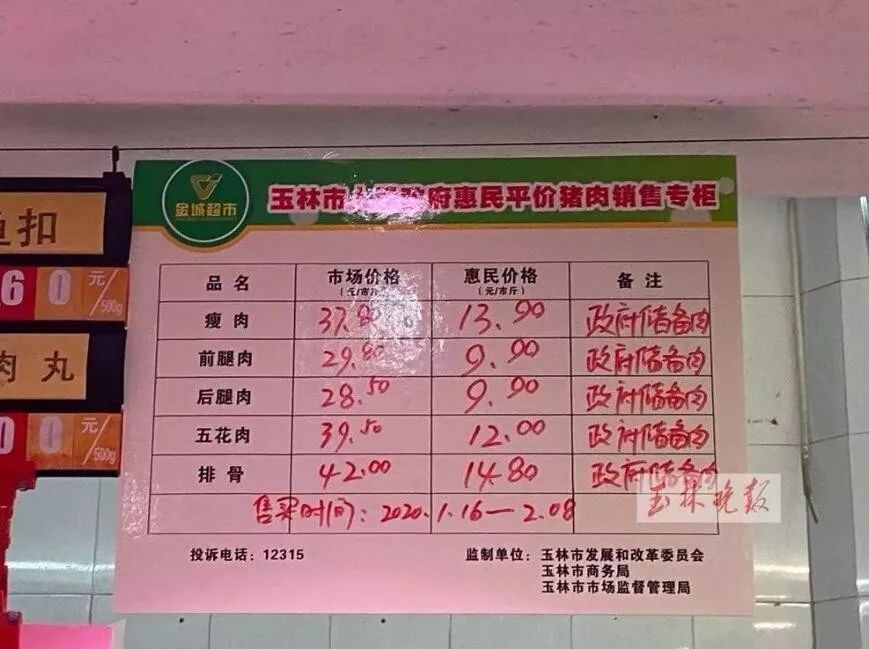 金城超市
玉林市人民政府惠民平价猪肉销售专柜
品名 市场价格 惠民价格 备注
(元/市斤) (元/市斤)
瘦肉 37.80 13.90 政府储备肉
前腿肉 29.80 9.90 政府储备肉
后腿肉 28.50 9.90 政府储备肉
五花肉 39.50 12.00 政府储备肉
排骨 42.00 14.80 政府储备肉
售卖时间：2020.1.16—2.08
投诉电话：12315 监制单位：玉林市发展和改革委员会
玉林市商务局
玉林市市场监督管理局
玉林晚报
扣
60 元/500g
肉丸
0 元/500g